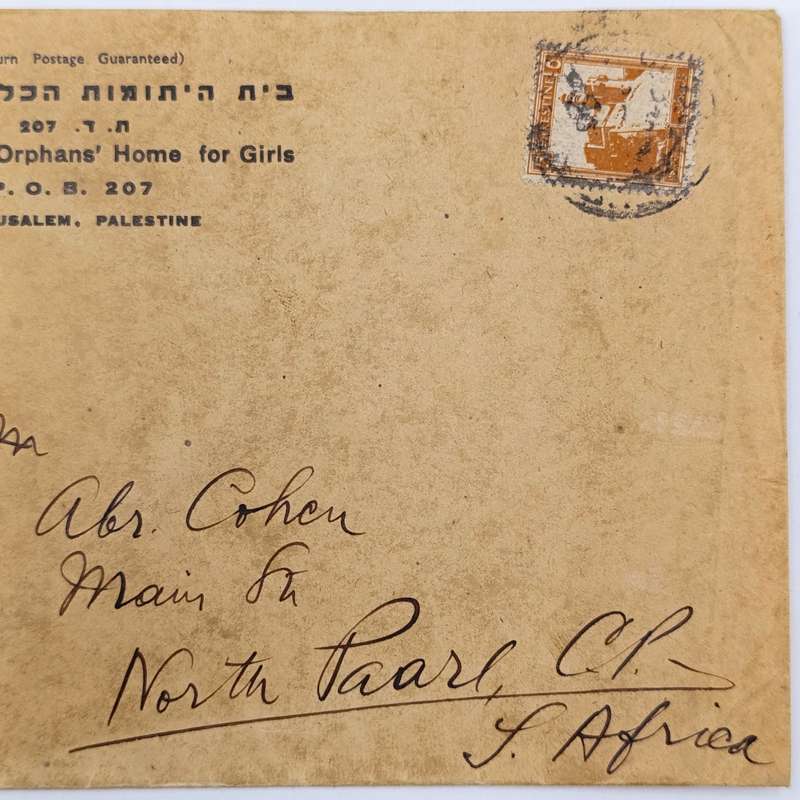 urn Postage Guaranteed)
בית היתומות הכל
ת. ד. 207
Orphans' Home for Girls
P. O. B. 207
USALEM, PALESTINE
PALESTINE
Abr. Cohen
Main St
North Paarl, C.P.
S. Africa